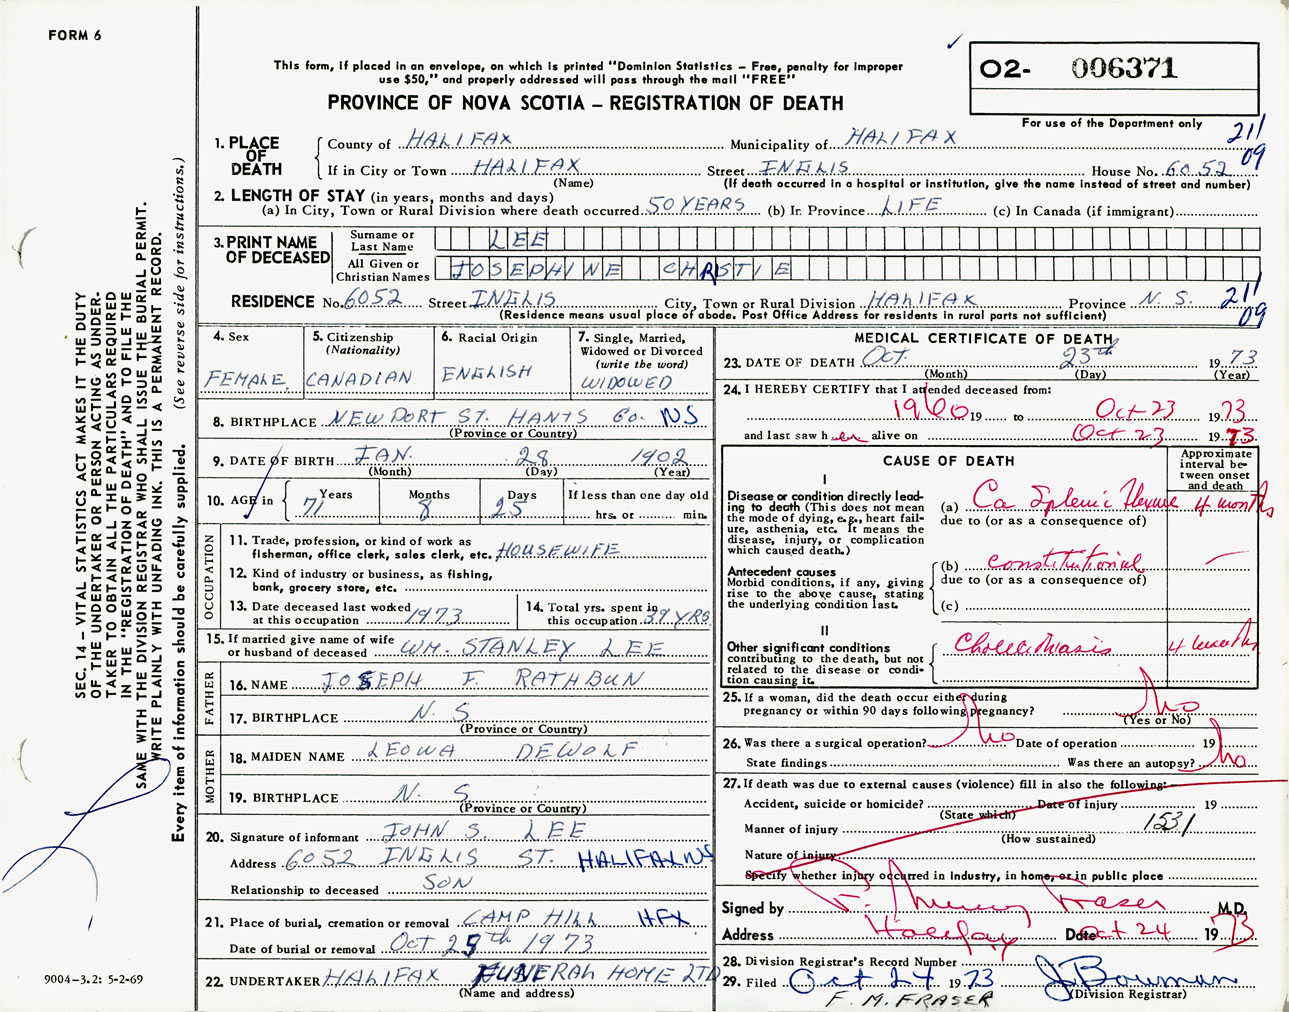 FORM 6
This form, if placed in an envelope, on which is printed "Dominion Statistics – Free, penalty for improper
use $50," and properly addressed will pass through the mail "FREE"
PROVINCE OF NOVA SCOTIA – REGISTRATION OF DEATH
O2- 006371
For use of the Department only
211
09
1. PLACE OF DEATH
County of HALIFAX Municipality of HALIFAX
If in City or Town HALIFAX Street INGLIS House No. 6052
(Name) (If death occurred in a hospital or institution, give the name instead of street and number)
2. LENGTH OF STAY (in years, months and days)
(a) In City, Town or Rural Division where death occurred 50 YEARS (b) In Province LIFE (c) In Canada (if immigrant)
3. PRINT NAME OF DECEASED
Surname or Last Name LEE
All Given or Christian Names JOSEPHINE CHRISTIE
RESIDENCE No. 6052 Street INGLIS City, Town or Rural Division HALIFAX Province N. S. 211
09
(Residence means usual place of abode. Post Office Address for residents in rural parts not sufficient)
4. Sex FEMALE
5. Citizenship (Nationality) CANADIAN
6. Racial Origin ENGLISH
7. Single, Married, Widowed or Divorced (write the word) WIDOWED
8. BIRTHPLACE NEWPORT ST. HANTS Co. NS
(Province or Country)
9. DATE OF BIRTH JAN. 28 1902
(Month) (Day) (Year)
10. AGE in Years 71 Months 8 Days 25 If less than one day old
hrs. or min.
OCCUPATION
11. Trade, profession, or kind of work as
fisherman, office clerk, sales clerk, etc. HOUSEWIFE
12. Kind of industry or business, as fishing,
bank, grocery store, etc.
13. Date deceased last worked at this occupation 1973
14. Total yrs. spent in this occupation 39 YRS
15. If married give name of wife
or husband of deceased WM. STANLEY LEE
FATHER
16. NAME JOSEPH F. RATHBUN
17. BIRTHPLACE N. S
(Province or Country)
MOTHER
18. MAIDEN NAME LEOWA DEWOLF
19. BIRTHPLACE N. S
(Province or Country)
20. Signature of informant JOHN S. LEE
Address 6052 INGLIS ST. HALIFAX NS
Relationship to deceased SON
21. Place of burial, cremation or removal CAMP HILL HFX
Date of burial or removal Oct 25th 1973
22. UNDERTAKER HALIFAX FUNERAL HOME LTD
(Name and address)
MEDICAL CERTIFICATE OF DEATH
23. DATE OF DEATH Oct. 23th 1973
(Month) (Day) (Year)
24. I HEREBY CERTIFY that I attended deceased from:
1960 19 to Oct 23 1973
and last saw her alive on Oct 23 1973
CAUSE OF DEATH
Approximate interval between onset and death
I
Disease or condition directly leading to death (This does not mean the mode of dying, e.g., heart failure, asthenia, etc. It means the disease, injury, or complication which caused death.)
(a) Ca Splenic flexure 4 months
due to (or as a consequence of)
Antecedent causes
Morbid conditions, if any, giving rise to the above cause, stating the underlying condition last.
(b) constitutional –
due to (or as a consequence of)
(c)
II
Other significant conditions
contributing to the death, but not related to the disease or condition causing it.
Cholelithiasis 4 months
25. If a woman, did the death occur either during
pregnancy or within 90 days following pregnancy? No
(Yes or No)
26. Was there a surgical operation? No Date of operation 19
State findings Was there an autopsy? No
27. If death was due to external causes (violence) fill in also the following:
Accident, suicide or homicide? Date of injury 19
(State which)
Manner of injury 1531
(How sustained)
Nature of injury
Specify whether injury occurred in industry, in home, or in public place
Signed by F. Murray Fraser M.D.
Address Halifax Date Oct 24 1973
28. Division Registrar's Record Number
29. Filed Oct 24 1973 J Bowman
(Division Registrar)
F. M. FRASER
SEC. 14 – VITAL STATISTICS ACT MAKES IT THE DUTY
OF THE UNDERTAKER OR PERSON ACTING AS UNDER-
TAKER TO OBTAIN ALL THE PARTICULARS REQUIRED
IN THE "REGISTRATION OF DEATH" AND TO FILE THE
SAME WITH THE DIVISION REGISTRAR WHO SHALL ISSUE THE BURIAL PERMIT.
WRITE PLAINLY WITH UNFADING INK. THIS IS A PERMANENT RECORD.
Every item of information should be carefully supplied. (See reverse side for instructions.)
9004-3.2: 5-2-69